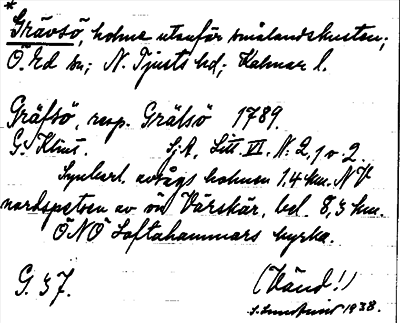 *
Grävsö, holme utanför smålandskusten;
Ö. Ed sn; N. Tjusts hd; Kalmar l.
Gräfsö, resp. Grälsö 1789.
G. Klint. Sj. A. Litt. VI. N: 2, 1 o. 2.
Synbart. avsågs holmen 1.4 km. NV
nordspetsen av ön Vårskär, bel. 8,3 km.
ÖNÖ Loftahammars kyrka.
G. 37. (Vänd!)
1938.